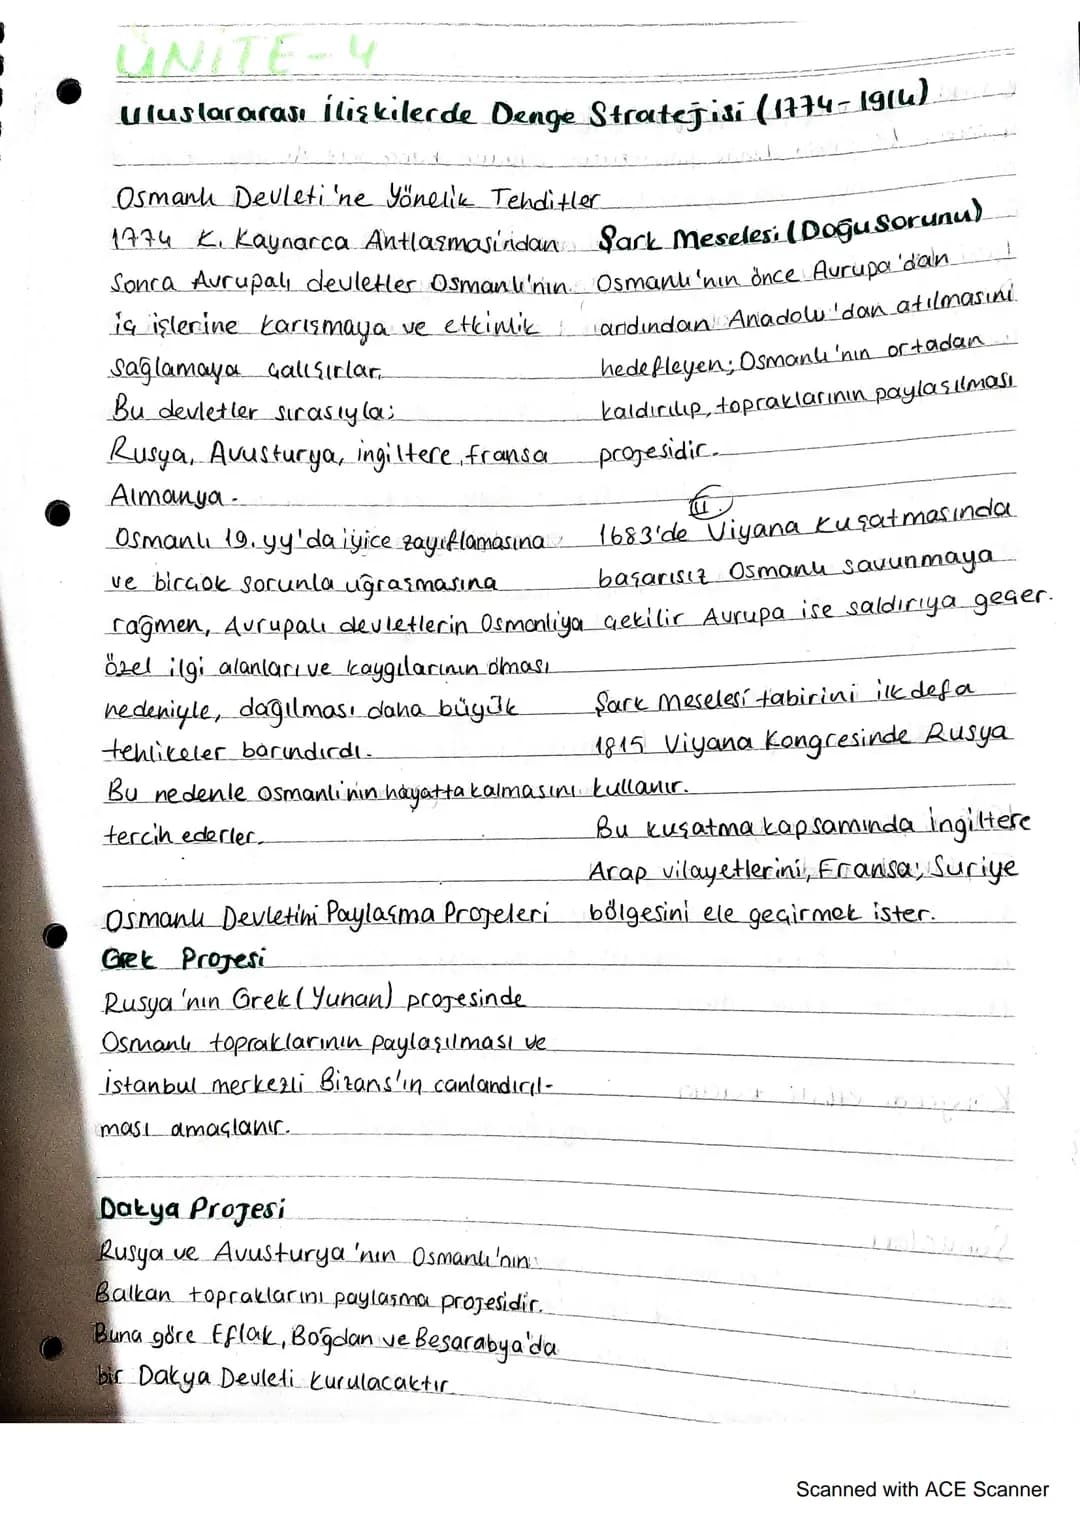 ÜNİTE-4
Uluslararası İlişkilerde Denge Stratejisi (1774-1914)
Osmanlı Devleti'ne Yönelik Tehditler
1774 K. Kaynarca Antlaşmasından
Sonra Avrupalı devletler Osmanlı'nın
iç işlerine karışmaya ve etkinlik
sağlamaya çalışırlar.
Bu devletler sırasıyla;
Rusya, Avusturya, ingiltere, fransa
Almanya.
Osmanlı 19.yy'da iyice zayıflamasına
ve birçok sorunla uğraşmasına
rağmen, Avrupalı devletlerin Osmanlıya
özel ilgi alanları ve kaygılarının olması
nedeniyle, dağılması daha büyük
tehlikeler barındırdı.
Bu nedenle osmanlı'nin hayatta kalmasını
tercih ederler.
Osmanlı Devletini Paylaşma Projeleri
Grek Projesi
Rusya'nın Grek (Yunan) projesinde
Osmanlı topraklarının paylaşılması ve
istanbul merkezli Bizans'ın canlandırıl-
ması amaçlanır.
Dakya Projesi
Rusya ve Avusturya'nın Osmanlı'nın
Balkan topraklarını paylaşma projesidir.
Buna göre Eflak, Boğdan ve Beşarabya'da
bir Dakya Devleti kurulacaktır
Şark Meselesi (Doğu Sorunu)
Osmanlı'nın önce Avrupa'dan
ardından Anadolu'dan atılmasını
hedefleyen; Osmanlı'nın ortadan
kaldırılıp, topraklarının paylaşılması
projesidir.
II.
1683'de Viyana kuşatmasında
başarısız Osmanlı savunmaya
çekilir Avrupa ise saldırıya geçer.
Şark Meselesi tabirini ilk defa
1815 Viyana Kongresinde Rusya
kullanır.
Bu kuşatma kapsamında ingiltere
Arap vilayetlerini, Fransa; Suriye
bölgesini ele geçirmek ister.
Scanned with ACE Scanner